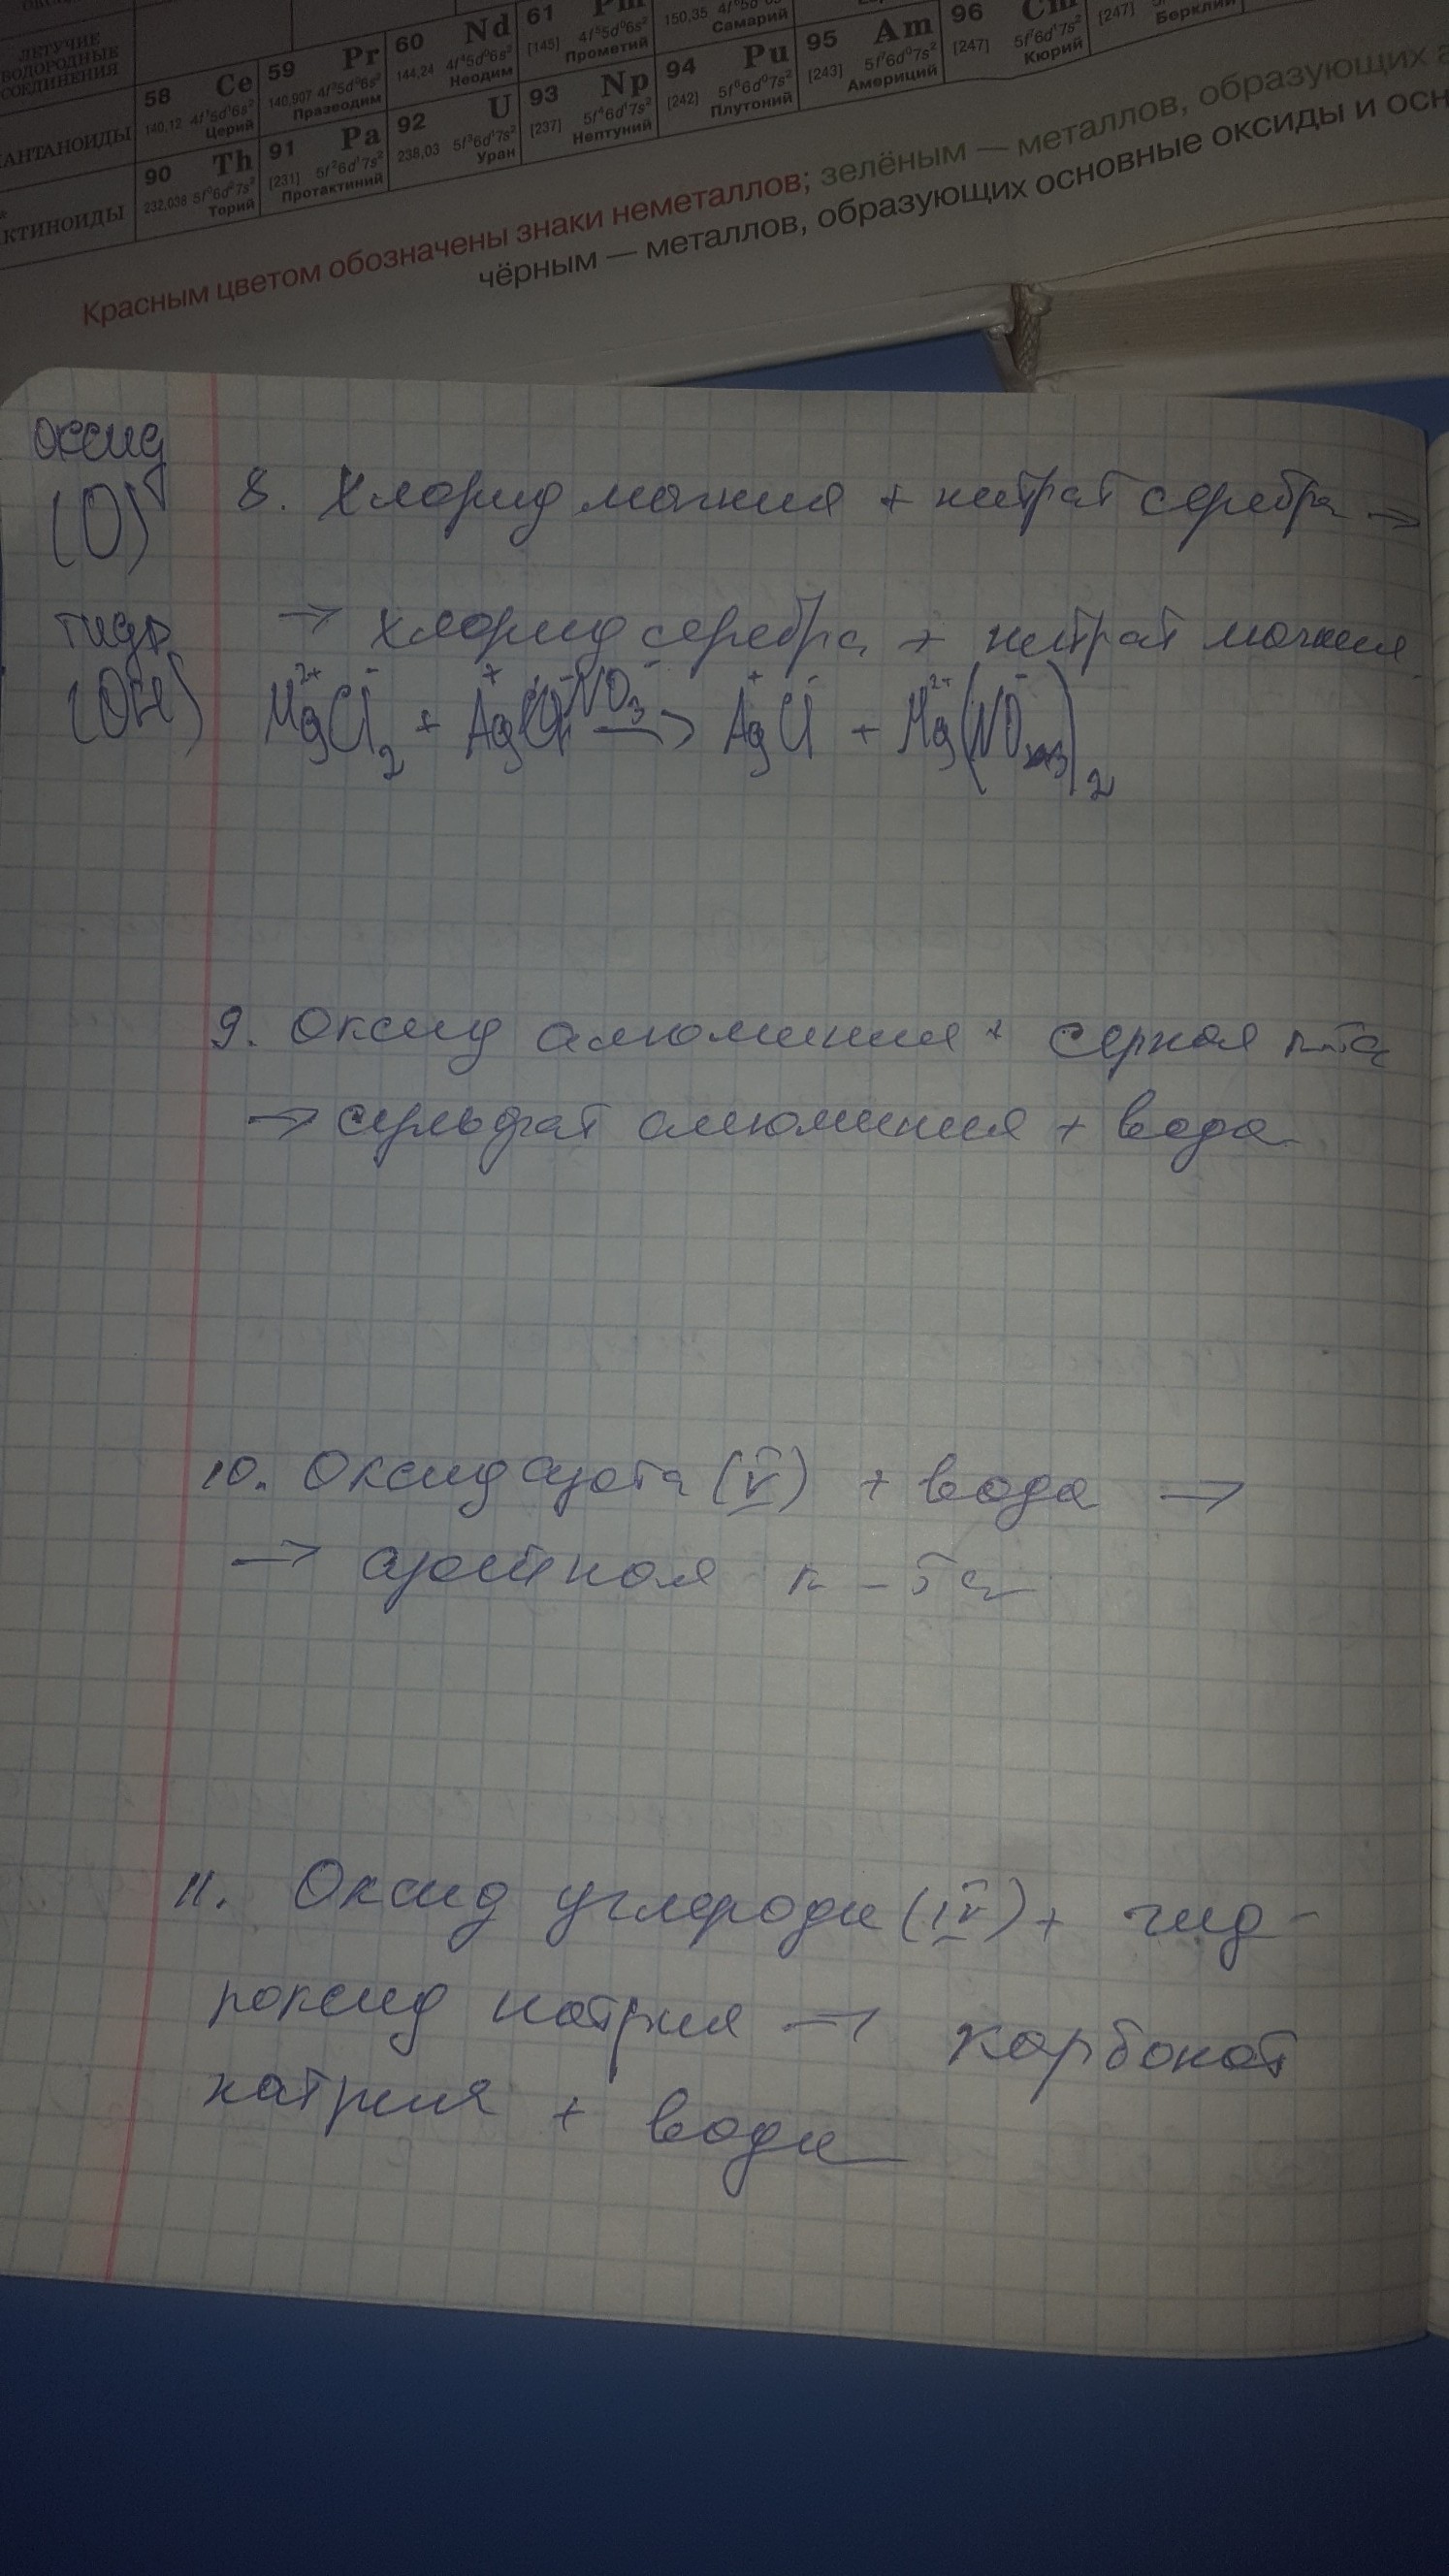 ЛЕТУЧИЕ
ВОДОРОДНЫЕ
СОЕДИНЕНИЯ
58 Ce
140,12 4f¹5d¹6s²
Церий
59 Pr
140,907 4f³5d⁰6s²
Празеодим
60 Nd
144,24 4f⁴5d⁰6s²
Неодим
61
[145] 4f⁵5d⁰6s²
Прометий
150,35
Самарий
АНТАНОИДЫ
90 Th
232,038 5f⁰6d²7s²
Торий
91 Pa
[231] 5f²6d¹7s²
Протактиний
92 U
238,03 5f³6d¹7s²
Уран
93 Np
[237] 5f⁴6d¹7s²
Нептуний
94 Pu
[242] 5f⁶6d⁰7s²
Плутоний
95 Am
[243] 5f⁷6d⁰7s²
Америций
96
[247] 5f⁷6d¹7s²
Кюрий
[247]
Берклий
КТИНОИДЫ
Красным цветом обозначены знаки неметаллов; зелёным — металлов, образующих
чёрным — металлов, образующих основные оксиды и осн
оксид
(O)
гидр
(OH)
8. Хлорид магния + нитрат серебра →
→ хлорид серебра + нитрат магния
Mg²⁺Cl⁻₂ + Ag⁺NO₃⁻ → Ag⁺Cl⁻ + Mg²⁺(NO₃⁻)₂
9. Оксид алюминия + серная к-та
→ сульфат алюминия + вода
10. Оксид азота (V) + вода →
→ азотная к-та
11. Оксид углерода (IV) + гид-
роксид натрия → карбонат
натрия + вода